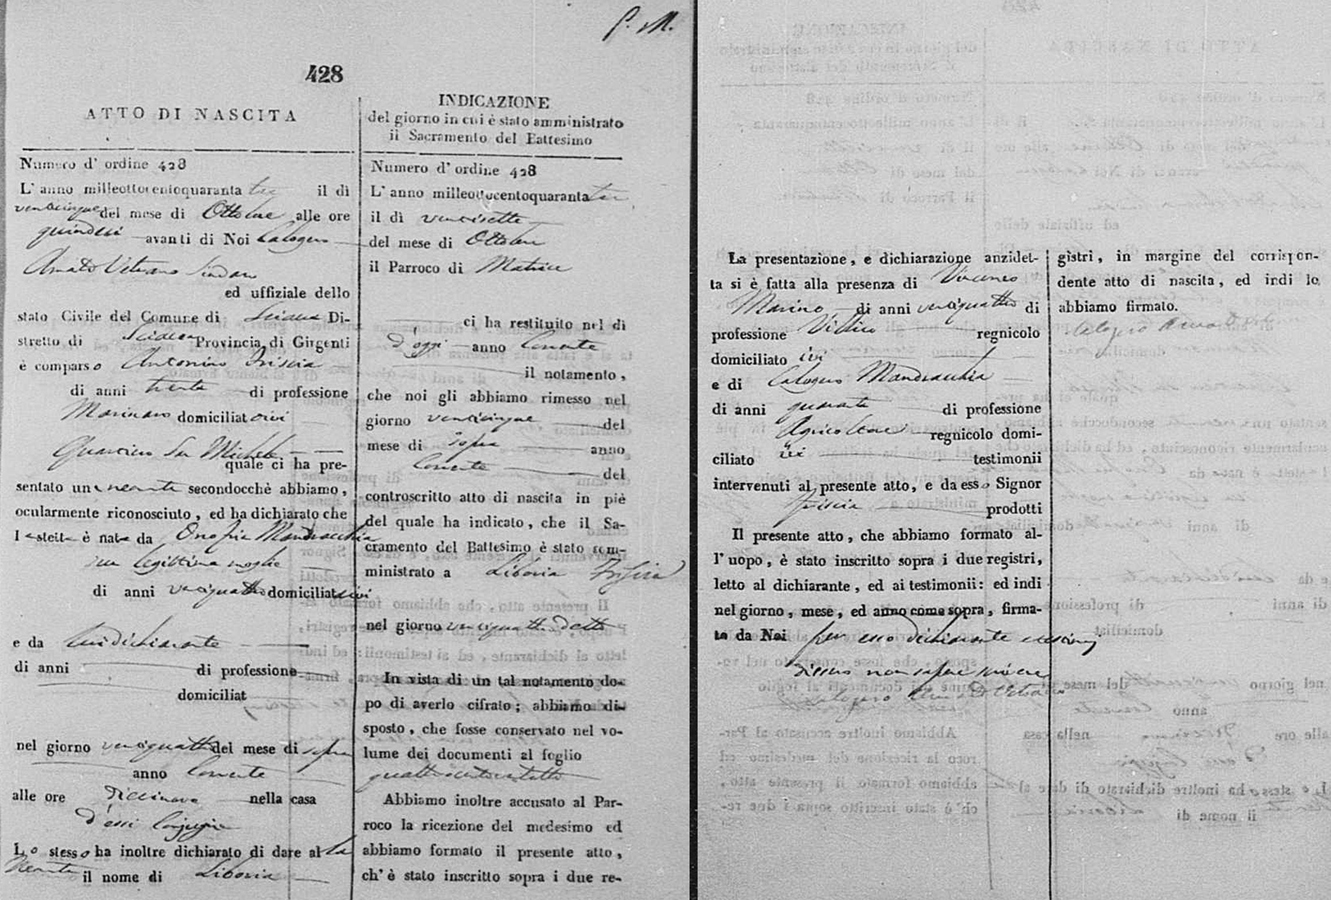 P. M.
428
ATTO DI NASCITA
Numero d' ordine 428
L' anno milleottocentoquaranta tre il dì
venticinque del mese di Ottobre alle ore
quindici avanti di Noi Calogero
Amato Vetrano Sindaco
ed uffiziale dello
stato Civile del Comune di Sciacca Di-
stretto di Sciacca Provincia di Girgenti
è comparso Antonino Friscia
di anni trenta di professione
Marinaro domiciliato ivi
Quartiere San Michele
quale ci ha pre-
sentato una neonata secondocchè abbiamo,
ocularmente riconosciuto, ed ha dichiarato che
l stessa è nata da Onofria Mandracchia
sua legittima moglie
di anni ventiquattro domiciliata ivi
e da lui dichiarante
di anni di professione
domiciliat
nel giorno ventiquattro del mese di sopra
anno corrente
alle ore diecinove nella casa
d'essi coniugi
Lo stesso ha inoltre dichiarato di dare al la
neonata il nome di Liboria
INDICAZIONE
del giorno in cui è stato amministrato
il Sacramento del Battesimo
Numero d' ordine 428
L' anno milleottocentoquaranta tre
il dì ventisette
del mese di Ottobre
il Parroco di Matrice
ci ha restituito nel dì
d'oggi anno corrente
il notamento,
che noi gli abbiamo rimesso nel
giorno venticinque del
mese di sopra anno
corrente del
controscritto atto di nascita in piè
del quale ha indicato, che il Sa-
cramento del Battesimo è stato som-
ministrato a Liboria Friscia
nel giorno ventiquattro detto
In vista di un tal notamento do-
po di averlo cifrato; abbiamo di-
sposto, che fosse conservato nel vo-
lume dei documenti al foglio
quattrocentoventotto
Abbiamo inoltre accusato al Par-
roco la ricezione del medesimo ed
abbiamo formato il presente atto,
ch' è stato inscritto sopra i due re-
La presentazione, e dichiarazione anzidet-
ta si è fatta alla presenza di Vincenzo
Marino di anni ventiquattro di
professione Villico regnicolo
domiciliato ivi
e di Calogero Mandracchia
di anni quaranta di professione
Agricoltore regnicolo domi-
ciliato ivi testimonii
intervenuti al presente atto, e da esso Signor
Friscia prodotti
Il presente atto, che abbiamo formato al-
l' uopo, è stato inscritto sopra i due registri,
letto al dichiarante, ed ai testimonii: ed indi
nel giorno, mese, ed anno come sopra, firma-
to da Noi per esso dichiarante e testimonj
dissero non sapere scrivere
Calogero Amato Vetrano
gistri, in margine del corrispon-
dente atto di nascita, ed indi lo
abbiamo firmato.
Calogero Amato